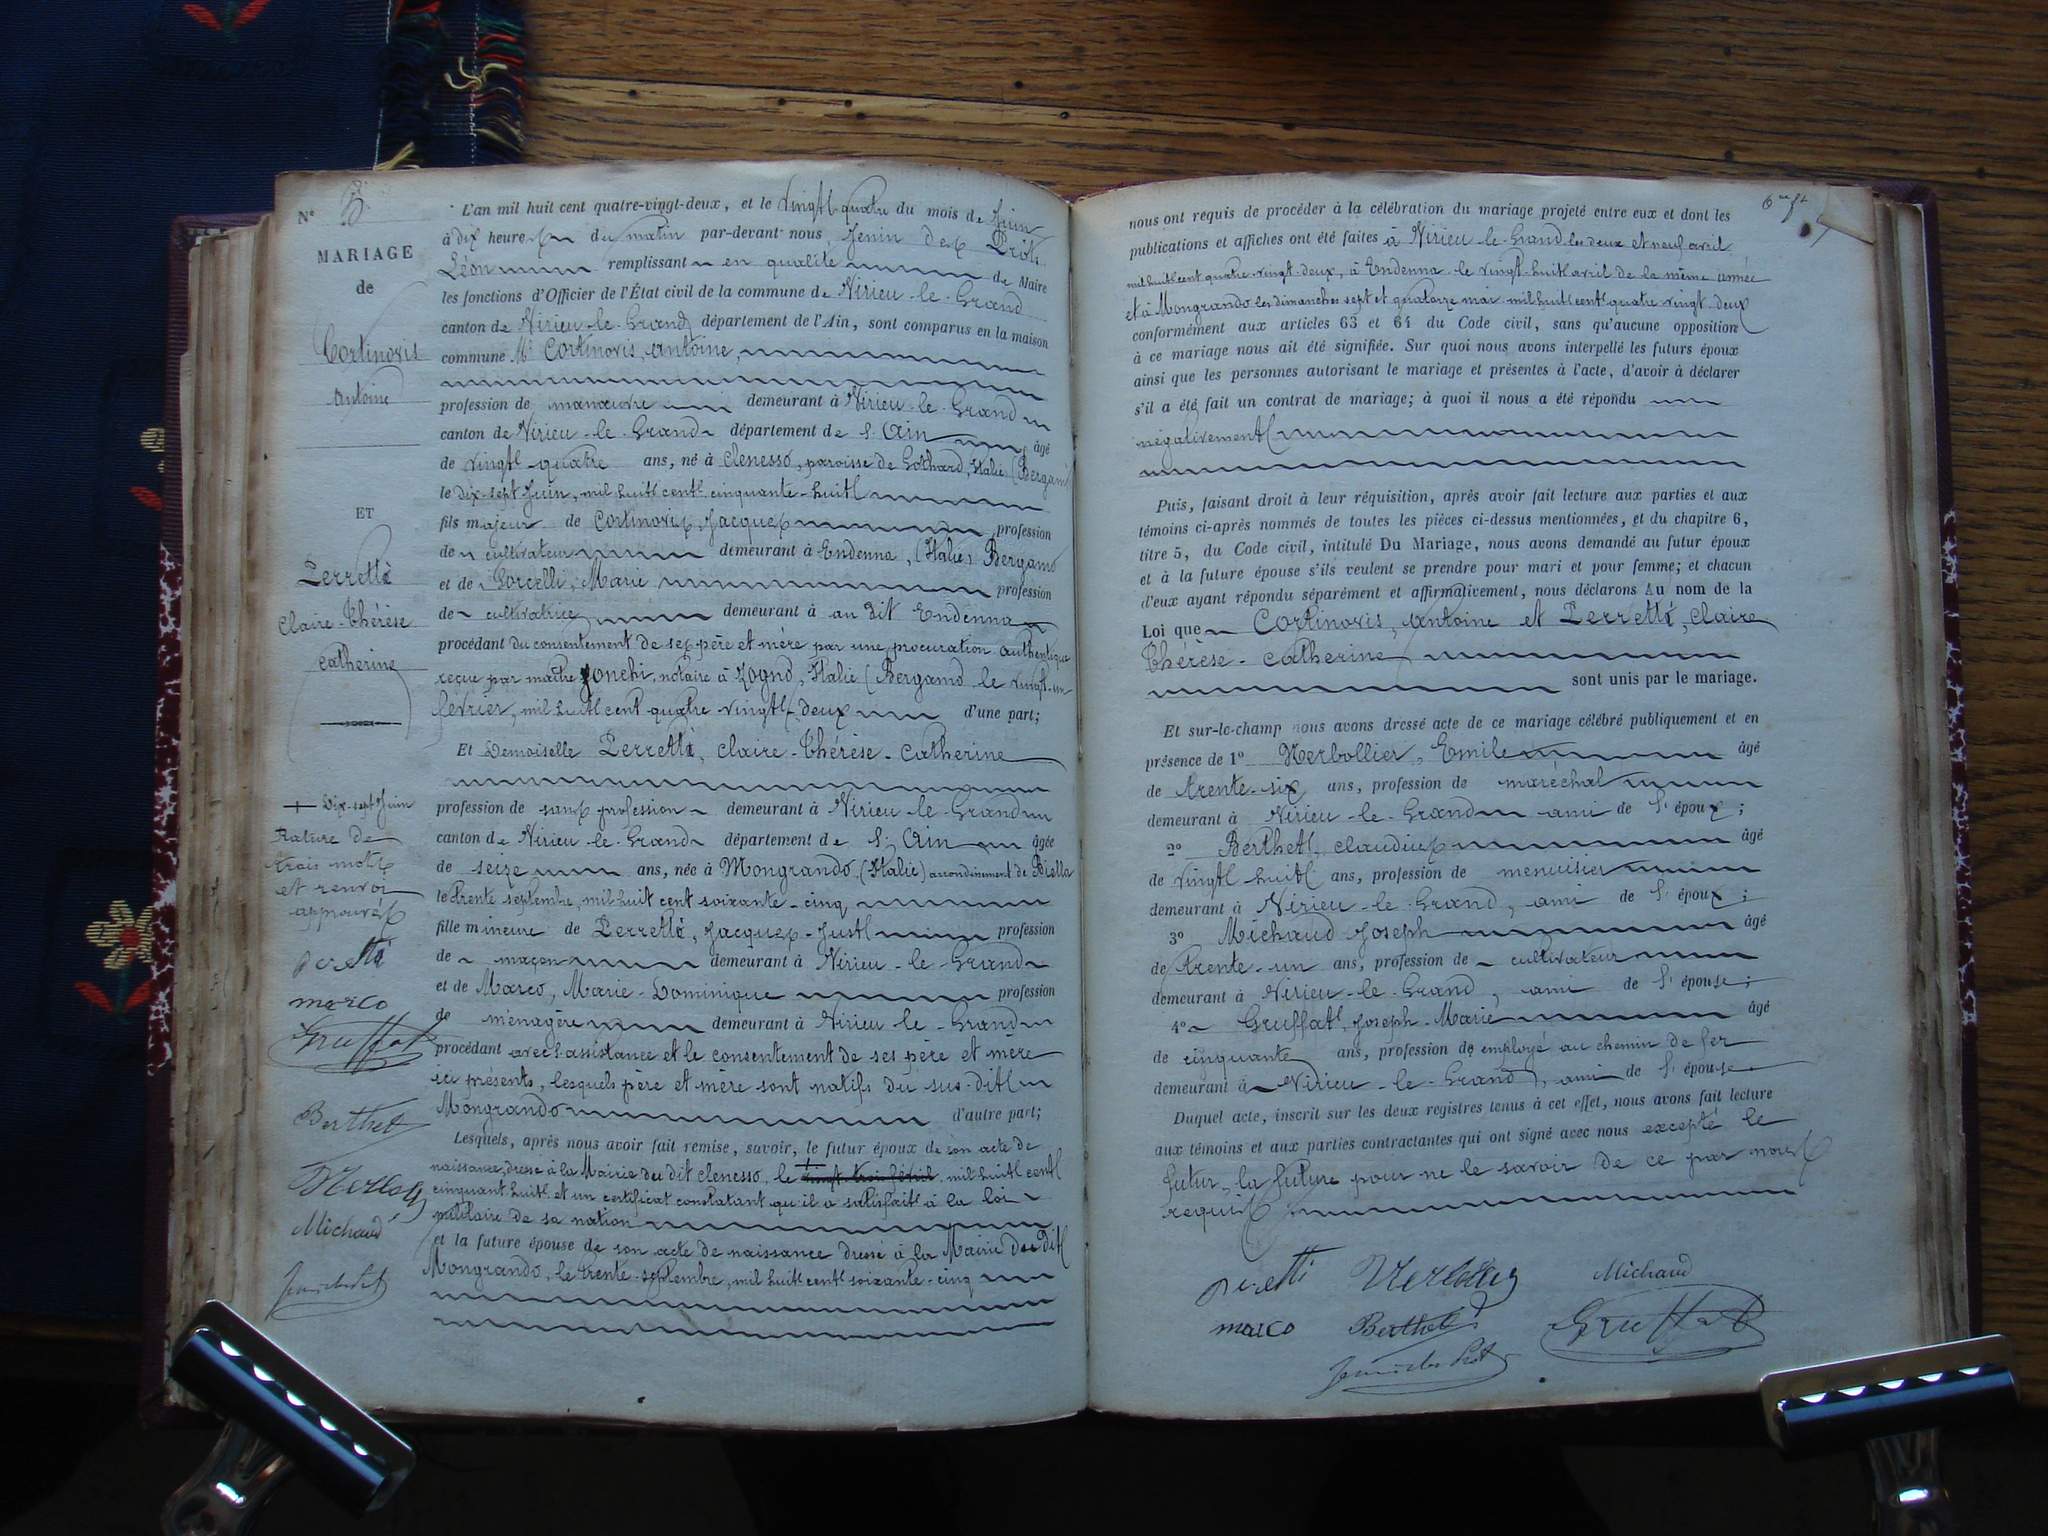 N° 5
MARIAGE
de
Cortinovis
Antoine
ET
Perretti
Claire-Thérèse
Catherine
+ Dix-sept Juin
Rature de
trois mots
et renvoi
approuvés
Peretti
marco
Gruffat
Berthet
Michaud
L'an mil huit cent quatre-vingt-deux, et le vingt-quatre du mois de Juin
à dix heures du matin par-devant nous, Jenin des Prots
Léon remplissant en qualité de Maire
les fonctions d'Officier de l'État civil de la commune de Virieu-le-Grand
canton de Virieu-le-Grand département de l'Ain, sont comparus en la maison
commune Mr Cortinovis, Antoine,
profession de manœuvre demeurant à Virieu-le-Grand
canton de Virieu-le-Grand département de l'Ain âgé
de vingt-quatre ans, né à Clenesso, paroisse de Gothard, Italie (Bergame
le dix-sept Juin, mil huit cent cinquante-huit
fils majeur de Cortinovis, Jacques profession
de cultivateur demeurant à Endenna, (Italie) Bergamo
et de Sorcelli, Marie profession
de cultivatrice demeurant à au dit Endenna
procédant du consentement de ses père et mère par une procuration authentique
reçue par maître Zonchi, notaire à Zogno, Italie (Bergamo le vingt-un
février, mil huit cent quatre vingt-deux d'une part;
Et Demoiselle Perretti, Claire-Thérèse-Catherine
profession de sans profession demeurant à Virieu-le-Grand
canton de Virieu-le-Grand département de l'Ain âgée
de seize ans, née à Mongrando (Italie) arrondissement de Biella
le trente septembre, mil huit cent soixante-cinq
fille mineure de Perretti, Jacques-Just profession
de maçon demeurant à Virieu-le-Grand
et de Marco, Marie-Dominique profession
de ménagère demeurant à Virieu-le-Grand
procédant avec l'assistance et le consentement de ses père et mère
ici présents, lesquels père et mère sont natifs du sus-dit
Mongrando d'autre part;
Lesquels, après nous avoir fait remise, savoir, le futur époux de son acte de
naissance, dressé à la Mairie du dit Clenesso, le + mil huit cent
cinquant huit et un certificat constatant qu'il a satisfait à la loi
militaire de sa nation
et la future épouse de son acte de naissance dressé à la Mairie du dit
Mongrando, le trente-septembre, mil huit cent soixante-cinq
nous ont requis de procéder à la célébration du mariage projeté entre eux et dont les
publications et affiches ont été faites à Virieu-le-Grand les deux et neuf avril
mil huit cent quatre vingt-deux, à Endenna le vingt-huit avril de la même année
et à Mongrando les dimanches sept et quatorze mai mil huit cent quatre vingt-deux
conformément aux articles 63 et 64 du Code civil, sans qu'aucune opposition
à ce mariage nous ait été signifiée. Sur quoi nous avons interpellé les futurs époux
ainsi que les personnes autorisant le mariage et présentes à l'acte, d'avoir à déclarer
s'il a été fait un contrat de mariage; à quoi il nous a été répondu
négativement
Puis, faisant droit à leur réquisition, après avoir fait lecture aux parties et aux
témoins ci-après nommés de toutes les pièces ci-dessus mentionnées, et du chapitre 6,
titre 5, du Code civil, intitulé Du Mariage, nous avons demandé au futur époux
et à la future épouse s'ils veulent se prendre pour mari et pour femme; et chacun
d'eux ayant répondu séparément et affirmativement, nous déclarons Au nom de la
Loi que Cortinovis, Antoine et Perretti, Claire
Thérèse-Catherine
sont unis par le mariage.
Et sur-le-champ nous avons dressé acte de ce mariage célébré publiquement et en
présence de 1° Merbollier, Emile âgé
de trente-six ans, profession de maréchal
demeurant à Virieu-le-Grand ami de l'époux;
2° Berthet, Claudius âgé
de vingt-huit ans, profession de menuisier
demeurant à Virieu-le-Grand, ami de l'époux;
3° Michaud Joseph âgé
de trente-un ans, profession de cultivateur
demeurant à Virieu-le-Grand, ami de l'épouse;
4° Gruffat, Joseph-Marie âgé
de cinquante ans, profession de employé au chemin de fer
demeurant à Virieu-le-Grand, ami de l'épouse.
Duquel acte, inscrit sur les deux registres tenus à cet effet, nous avons fait lecture
aux témoins et aux parties contractantes qui ont signé avec nous excepté le
futur, la future pour ne le savoir de ce par nous
requis
Peretti Michaud
marco Berthet Gruffat